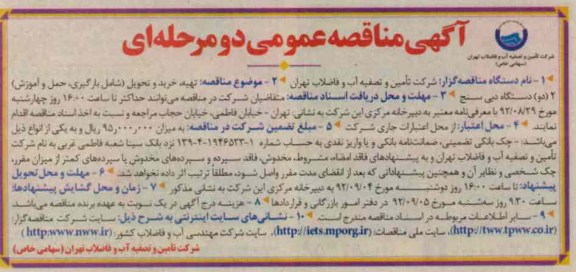 آگهی مناقصه عمومی دو مرحله‌ای
شرکت تأمین و تصفیه آب و فاضلاب تهران
(سهامی خاص)
۱- نام دستگاه مناقصه‌گزار: شرکت تأمین و تصفیه آب و فاضلاب تهران ۲- موضوع مناقصه: تهیه، خرید و تحویل (شامل بارگیری، حمل و آموزش)
۲ (دو) دستگاه دبی سنج ۳- مهلت و محل دریافت اسناد مناقصه: متقاضیان شرکت در مناقصه می‌توانند حداکثر تا ساعت ۱۶:۰۰ روز چهارشنبه
مورخ ۹۲/۰۸/۲۹ با معرفی‌نامه معتبر به دبیرخانه مرکزی این شرکت به نشانی: تهران - خیابان فاطمی، خیابان حجاب مراجعه و نسبت به اخذ اسناد مناقصه اقدام
نمایند. ۴- محل اعتبار: از محل اعتبارات جاری شرکت ۵- مبلغ تضمین شرکت در مناقصه: به میزان ۹۵,۰۰۰,۰۰۰ ریال و به یکی از انواع ذیل
می‌باشد: - چک بانکی تضمینی، ضمانت‌نامه بانکی و یا واریز نقدی به حساب شماره ۱-۱۹۴۶۵۳۳-۴-۱۳۹ نزد بانک سینا شعبه فاطمی غربی به نام شرکت
تأمین و تصفیه آب و فاضلاب تهران و به پیشنهادهای فاقد امضاء، مشروط، مخدوش، فاقد سپرده و سپرده‌های مخدوش یا سپرده‌های کمتر از میزان مقرر،
چک شخصی و نظایر آن و همچنین پیشنهاداتی که بعد از انقضای مدت مقرر واصل شود، مطلقاً ترتیب اثر داده نخواهد شد. ۶- مهلت و محل تحویل
پیشنهاد: تا ساعت ۱۶:۰۰ روز دوشنبه مورخ ۹۲/۰۹/۰۴ به دبیرخانه مرکزی این شرکت به نشانی مذکور ۷- زمان و محل گشایش پیشنهادها:
ساعت ۹:۳۰ روز سه‌شنبه مورخ ۹۲/۰۹/۰۵ در دفتر امور بازرگانی و قراردادها ۸- هزینه درج آگهی در یک نوبت به عهده برنده مناقصه می‌باشد.
۹- سایر اطلاعات مربوطه در اسناد مناقصه مندرج است. ۱۰- نشانی‌های سایت اینترنتی به شرح ذیل: سایت شرکت مناقصه‌گزار:
(http://tww.tpww.co.ir)، سایت ملی مناقصات: (http://iets.mporg.ir)، سایت شرکت مهندسی آب و فاضلاب کشور: (http:www.nww.ir)
شرکت تأمین و تصفیه آب و فاضلاب تهران (سهامی خاص)